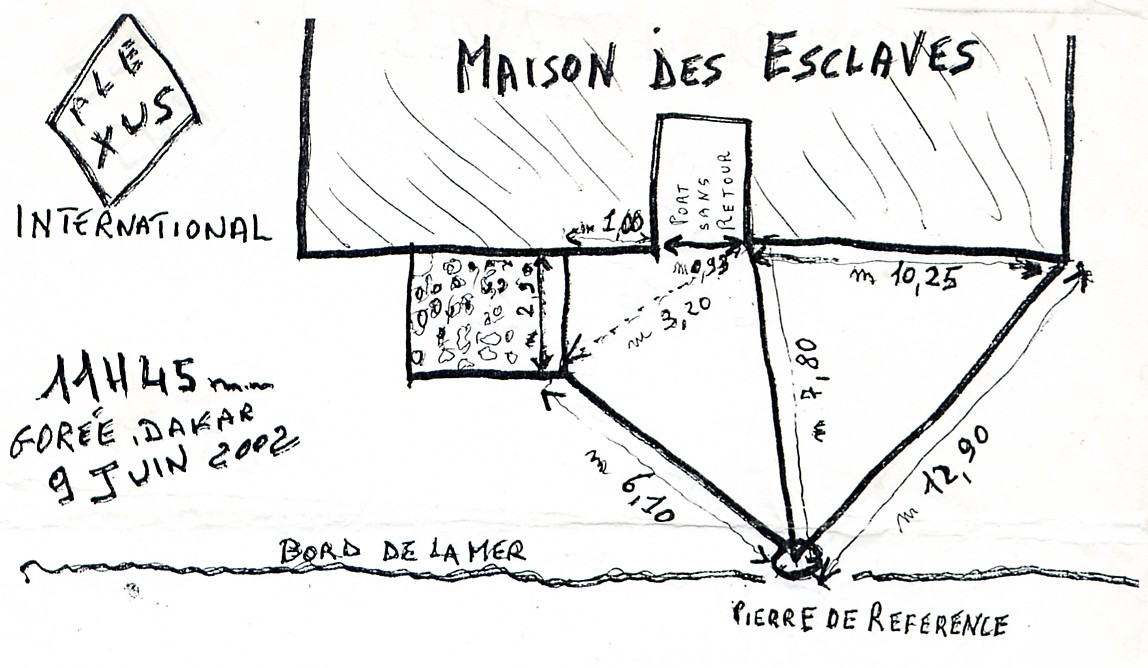 ALE
XUS
INTERNATIONAL
MAISON DES ESCLAVES
PORT
SANS
RETOUR
m 1,00
m 0,93
m 10,25
m 2,90
m 3,20
m 7,80
m 6,10
m 12,90
11H45 min
GORÉE, DAKAR
9 JUIN 2002
BORD DE LA MER
PIERRE DE REFERÉNCE